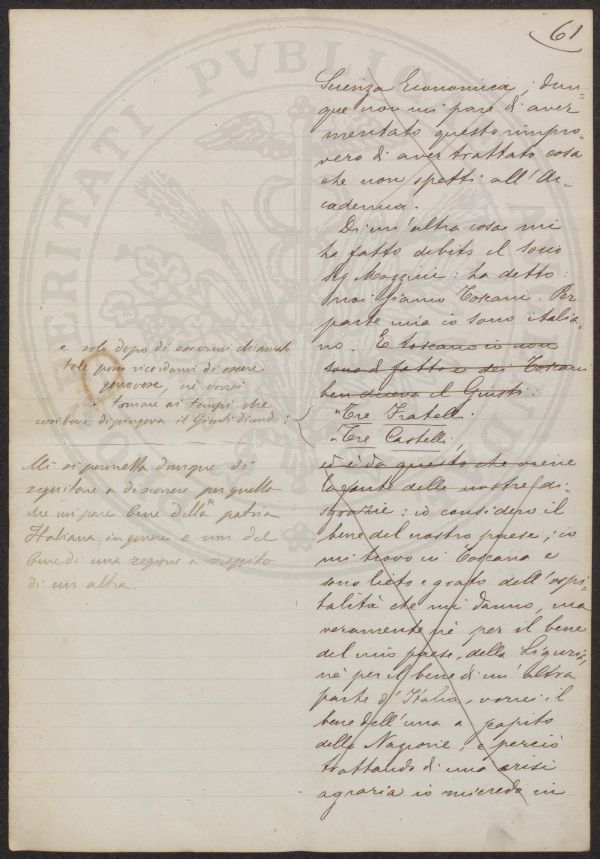 61
Scienza Economica; dun-
que non mi pare di aver
meritato questo rimpro-
vero di aver trattato cosa
che non spetti all'Ac-
cademia.
Di un'altra cosa mi
ha fatto debito il socio
Sig Mazzini: ha detto:
noi siamo Toscani. Per
parte mia io sono italia-
no. E toscano io non
sono di fatto e dei Toscani
ben diceva il Giusti:
"Tre Fratelli
"Tre Castelli,
ed è da questo che viene
la fonte delle nostre di-
sgrazie: io considero il
bene del nostro paese; io
mi trovo in Toscana e
sono lieto e grato dell'ospi-
talità che mi danno, ma
veramente nè per il bene
del mio paese, della Liguria,
nè per il bene di un'altra
parte d'Italia, vorrei il
bene dell'una a scapito
della Nazione; e perciò
trattando di una crisi
agraria io mi credo in
e solo dopo di essermi chiamato
tale posso ricordarmi di essere
genovese, nè vorrei
tornare ai tempi che
così bene dipingeva il Giusti dicendo:
Mi si permetta dunque di
seguitare a discorrere per quello
che mi pare bene della patria
Italiana in genere e non del
bene di una regione a scapito
di un altra.